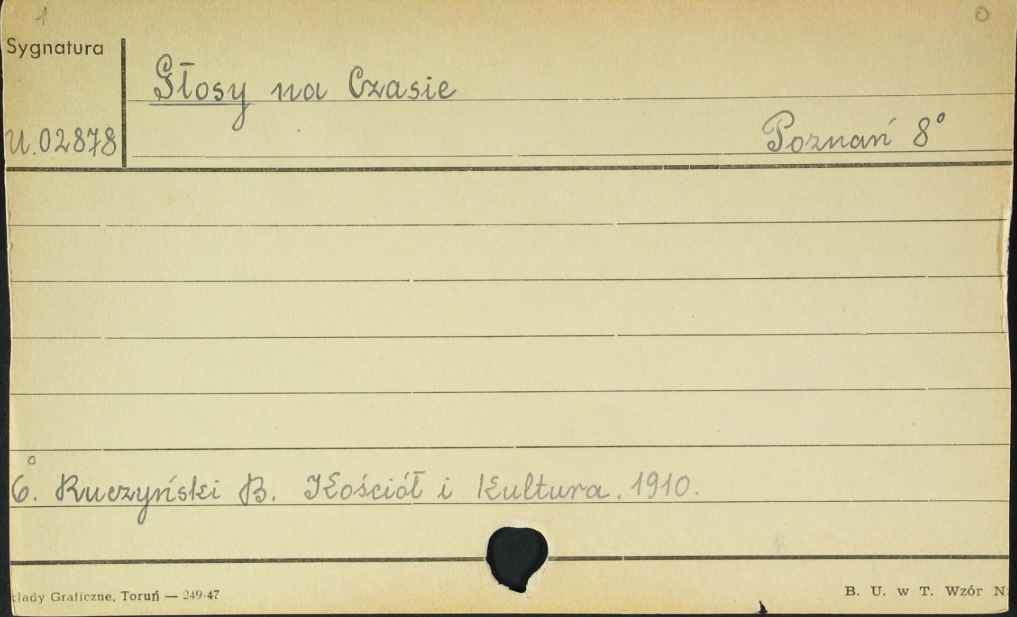 1
Sygnatura
Głosy na Czasie
U.02878
Poznań 8°
6. Ruczyński B. Kościół i Kultura. 1910.
kłady Graficzne, Toruń — 249-47
B. U. w T. Wzór N